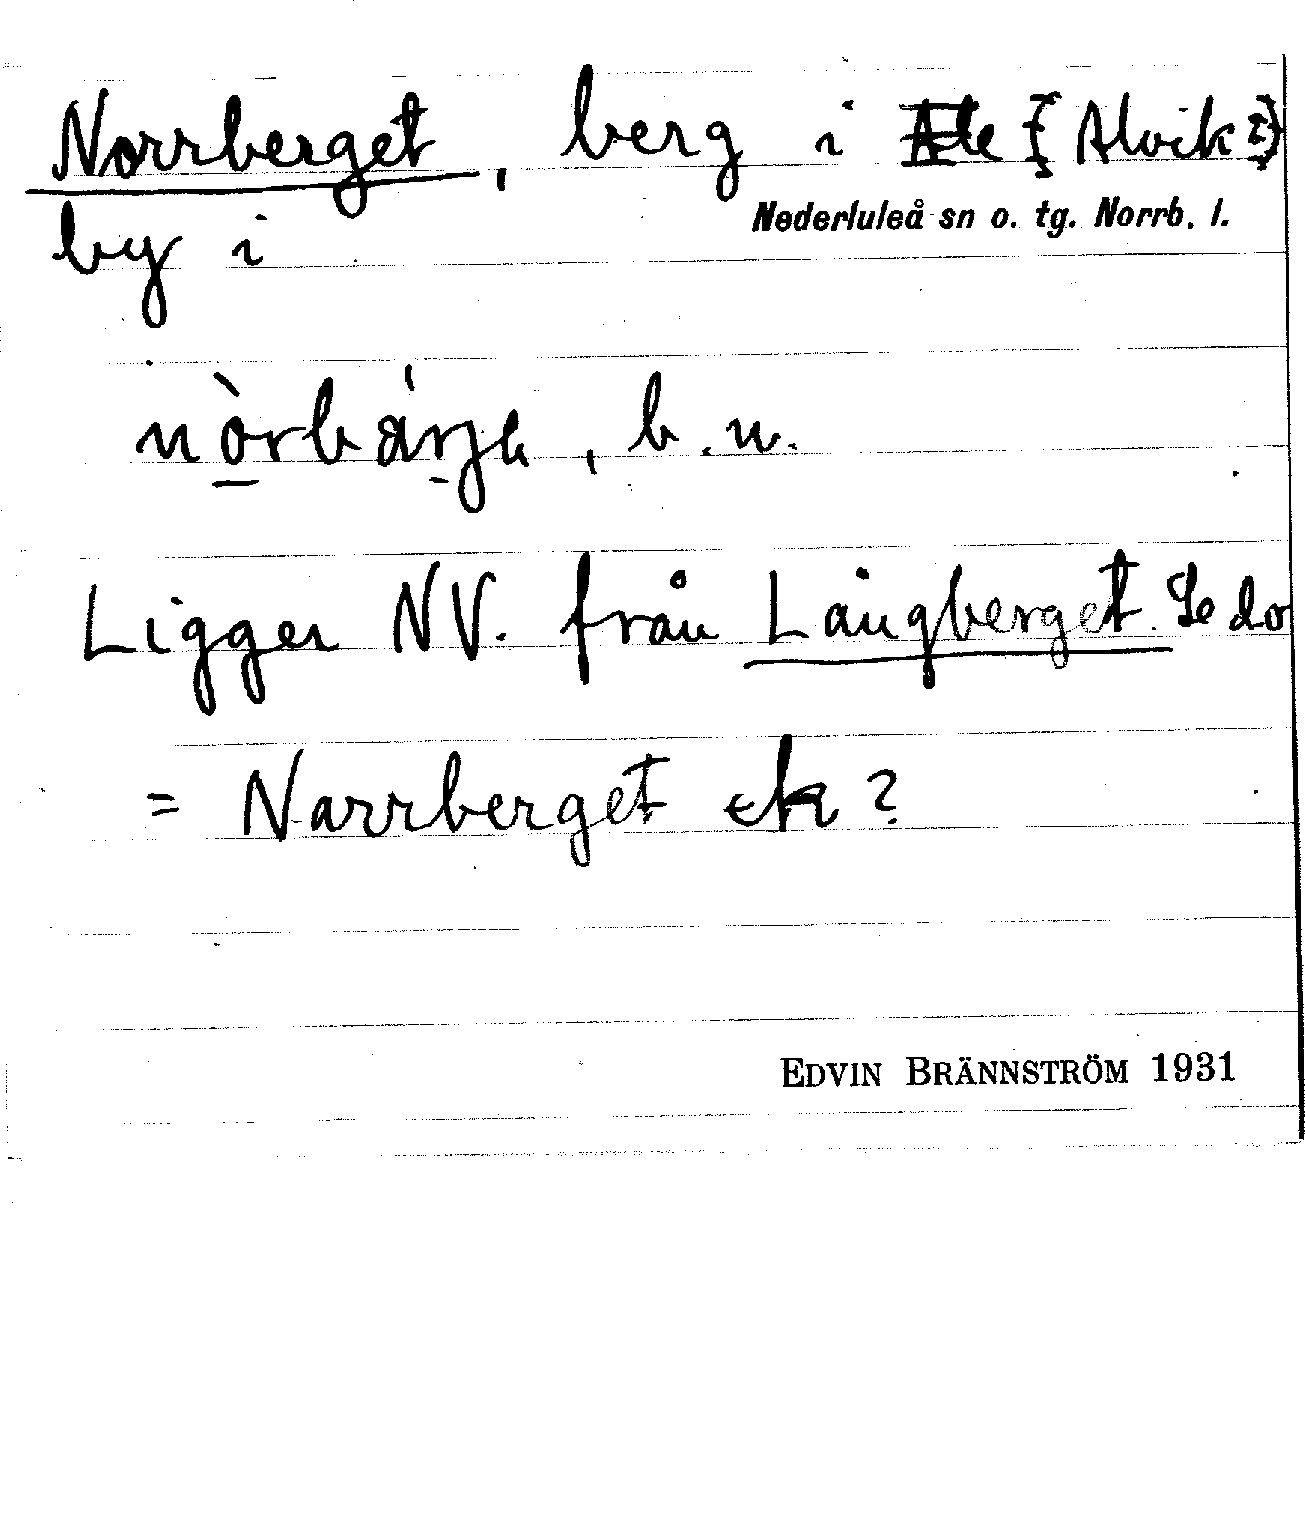 Norrberget, berg i Ale [Alvik?]
Nederluleå sn o. tg. Norrb. l.
by i
nòrbárja, b.n.
Ligger NV. från Långberget. Se do
= Narrberget ek?
EDVIN BRÄNNSTRÖM 1931